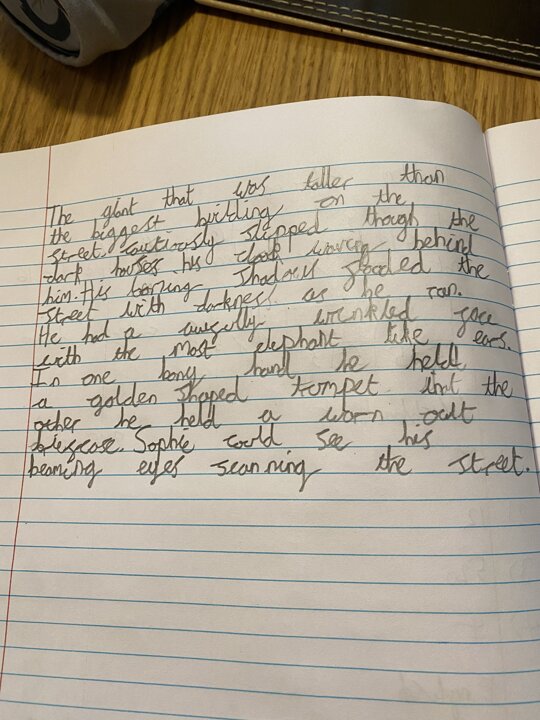 The giant that was taller than
the biggest building on the
street. cautiously slipped though the
dark houses. his cloak waving behind
him. His booming shadows flooded the
street with darkness as he ran.
He had a wrinkled face
with the most elephant like ears.
In one bony hand he held
a golden shaped trompet int the
other he held a worn outt
briefcase. Sophie could see his
beaming eyes scanning the street.